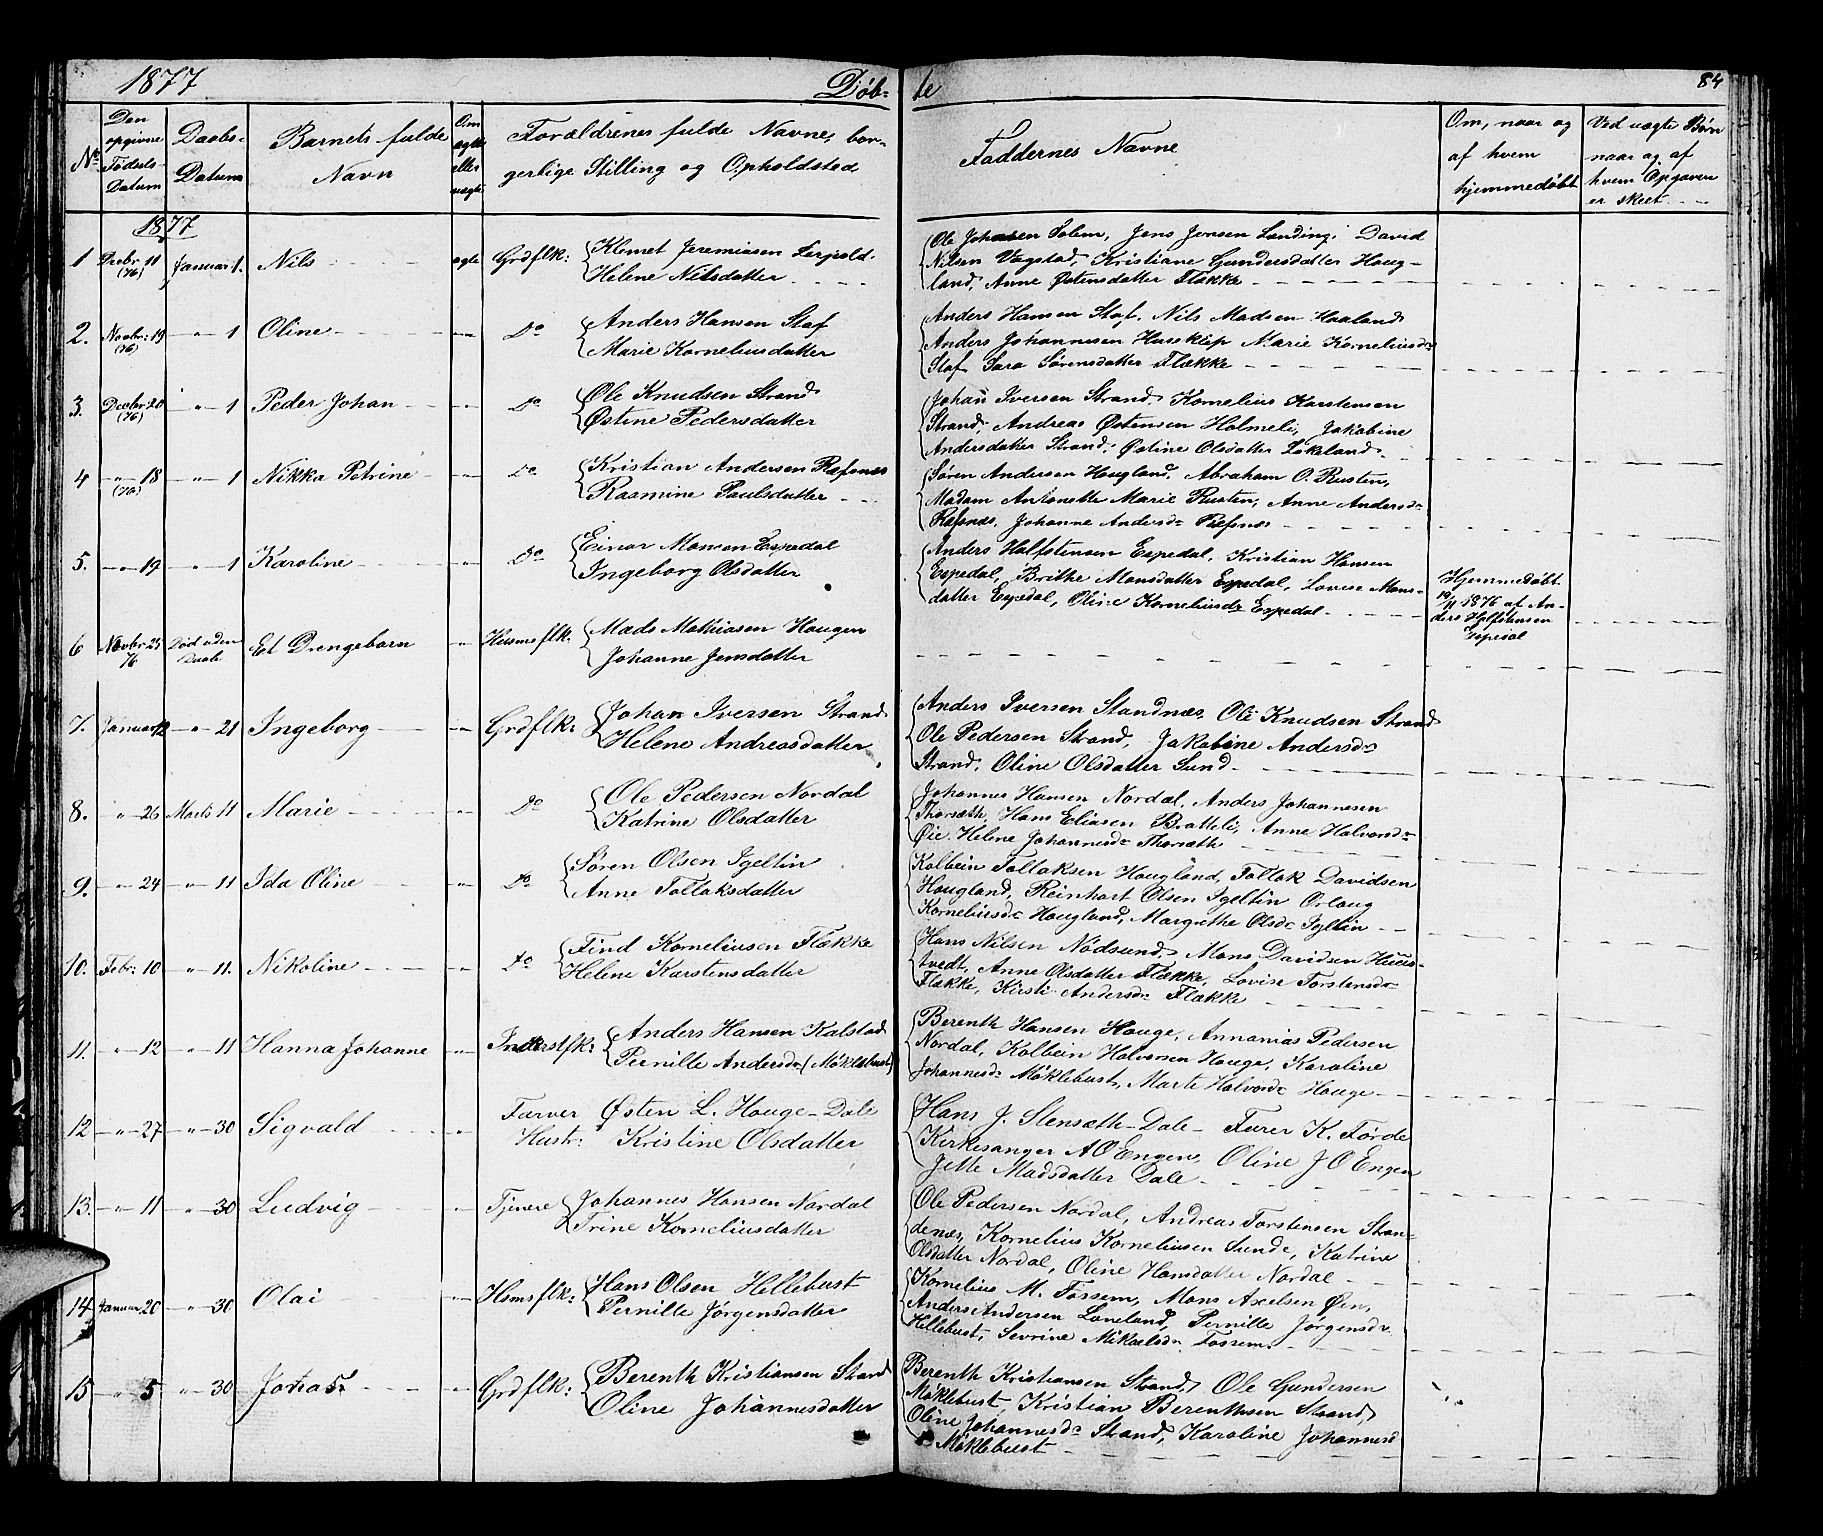 1877 Døb- te 84
No. Den opgivne Fødsels-Datum Daabs-Datum Barnets fulde Navn Om ægte eller uægte Forældrenes fulde Navne, bor-
gerlige Stilling og Opholdsted
Faddernes Navne
Om, naar og af hvem hjemmedøbt
Ved uægte Børn naar og af hvem Opgaven er skeet
1877
1 Decbr 11 (76) Januar 1. Nils ægte Grdflk: Klemet Jeremiasen
Helene Nilsdatter
Ole Johansen Solem, Jens Jensen Landing, David
Nilsen Vågstad, Kristiane Gundersdatter Houg-
land, Anne Østensdatter Flække
2. Novbr: 19 (76) " 1 Oline " Do Anders Hansen Staf
Marie Korneliusdatter
Anders Hansen Staf, Nils Madsen Haaland
Anders Johannesen Hussklep Marie Korneliusdr
Staf Sara Sørensdatter Flække
3. Decbr 20 (76) " 1 Peder Johan " Do Ole Knudsen Strand
Østine Pedersdatter
Johan Iversen Strand, Kornelius Karstensen
Strand, Andreas Østensen Holmeli, Jakobine
Andersdatter Strand, Østine Olsdatter Løkeland
4 " 18 (76) " 1 Nikka Petrine " Do Kristian Andersen Ræfsnæs
Rasmine Paulsdatter
Søren Andersen Hougland, Abraham O. Rusten,
Madam Antonette Marie Rusten, Anne Andersdr
Ræfsnæs, Johanne Andersdr Ræfsnæs
5. " 19 " 1 Karoline " Do Einar Monsen Espedal
Ingeborg Olsdatter
Anders Halfstensen Espedal, Kristian Hansen
Espedal, Brithe Monsdatter Espedal, Lovise Mons-
datter Espedal, Oline Korneliusdr Espedal
Hjemmedøbt
19/11 1876 af An-
ders Halfstensen
Espedal
6 Novbr 25 76 Død uden Daab Et Drengebarn " Husmsflk: Mads Mathiasen Haugen
Johanne Jensdatter
7. Januar 12 " 21 Ingeborg " Grdflk: Johan Iversen Strand
Helene Andreasdatter
Anders Iversen Standnæs, Ole Knudsen Strand
Ole Pedersen Strand, Jakobine Andersdr
Strand, Oline Olsdatter Sund
8. " 26 Marts 11 Marie " Do Ole Pedersen Nordal
Katrine Olsdatter
Johannes Hansen Nordal, Anders Johannesen
Thorsæth, Hans Eliasen Bratteli, Anne Halvorsdr
Øie, Helene Johannesdr Thorsæth
9. " 24 " 11 Ida Oline " Do Søren Olsen Igeltin
Anne Tollaksdatter
Kolbein Tollaksen Hougland, Tollak Davidsen
Hougland, Reinhart Olsen Igeltin Orlaug
Korneliusdr Hougland, Margrethe Olsdr Igeltin
10. Febr: 10 " 11. Nikoline " Do Find Korneliusen Flække
Helene Karstensdatter
Hans Nilsen Nødsund, Mons Davidsen Huus-
tvedt, Anne Olsdatter Flække, Lovise Torstensdr
Flække, Kirsti Andersdr Flække
11. " 12 " 11 Hanna Johanne " Inderstflk: Anders Hansen Kalstad
Pernille Andersdr (Møklebust)
Berenth Hansen Houge, Annanias Pedersen
Nordal, Kolbein Halvorsen Houge, Karoline
Johannesdr Møklebust, Marte Halvordr Houge
12 " 27 " 30 Sigvald " Farver Østen L. Houge-Dale
Hustr: Kristine Olsdatter
Hans J. Stensæth-Dale- Furer K. Førde
Kirkesanger A O Engen, Oline J O Engen
Jette Madsdatter Dale
13. " 11 " 30 Ludvig " Tjenere Johannes Hansen Nordal
Trine Korneliusdatter
Ole Pedersen Nordal, Andreas Torstensen Stran-
denæs, Kornelius Korneliusen Sunde, Katrine
Olsdatter Nordal, Oline Hansdatter Nordal
14 Januar 20 " 30 Olai " Hsmsflk: Hans Olsen Hellebust
Pernille Jørgensdatter
Kornelius M. Fossem, Mons Axelsen Øen,
Anders Andersen Loneland, Pernille Jørgensdr
Hellebust, Sevrine Mikaelsdr Fossem
15 " 5 " 30 Johas " Grdflk: Berenth Kristiansen Strand
Oline Johannesdatter
Berenth Kristiansen Strand, Ole Gundersen
Møklebust, Kristian Berenthsen Strand,
Oline Johannesdr Strand, Karoline Johannesd
Møklebust